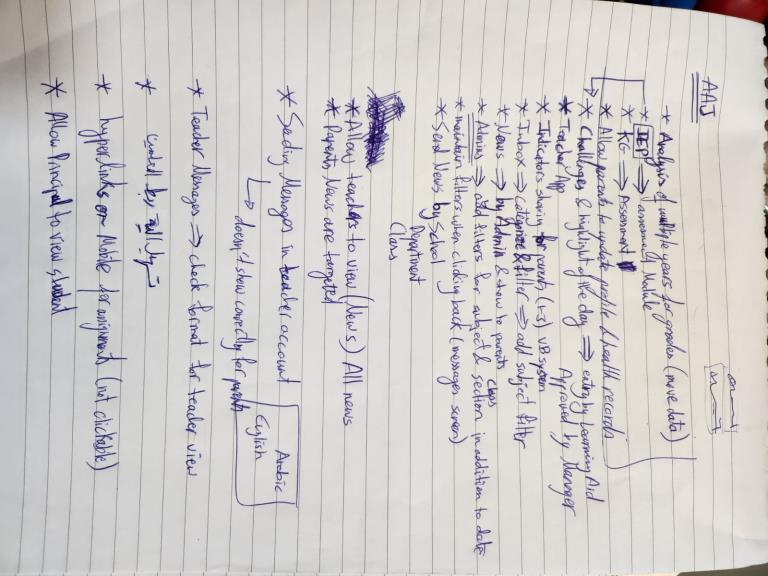 AAJ
* Analysis of multiple years for grades (move data)
* IEP ⇒ assessment Module
* KG ⇒ Assessment
* Allow parents to update profile & health records
* Challenges & highlight of the day ⇒ entry by Learning Aid
Approved by Manager
* Teacher App
* Indicators show for parents (1-3) VB system
* Inbox ⇒ categorize & filter ⇒ add subject filter
* News ⇒ by Admin & show to parents
class
* Admins ⇒ add filters for subject & section in addition to date
* maintain filters when clicking back (messages screen)
* Send News by School
Department
Class
* Allow teachers to view (News) All news
* Parents News are targeted
* Sending Messages in teacher account
↳ doesn't show correctly for parents
Arabic
English
* Teacher Messages ⇒ check format for teacher view
*
* hyperlinks on Mobile for assignment (not clickable)
* Allow Principal to view student